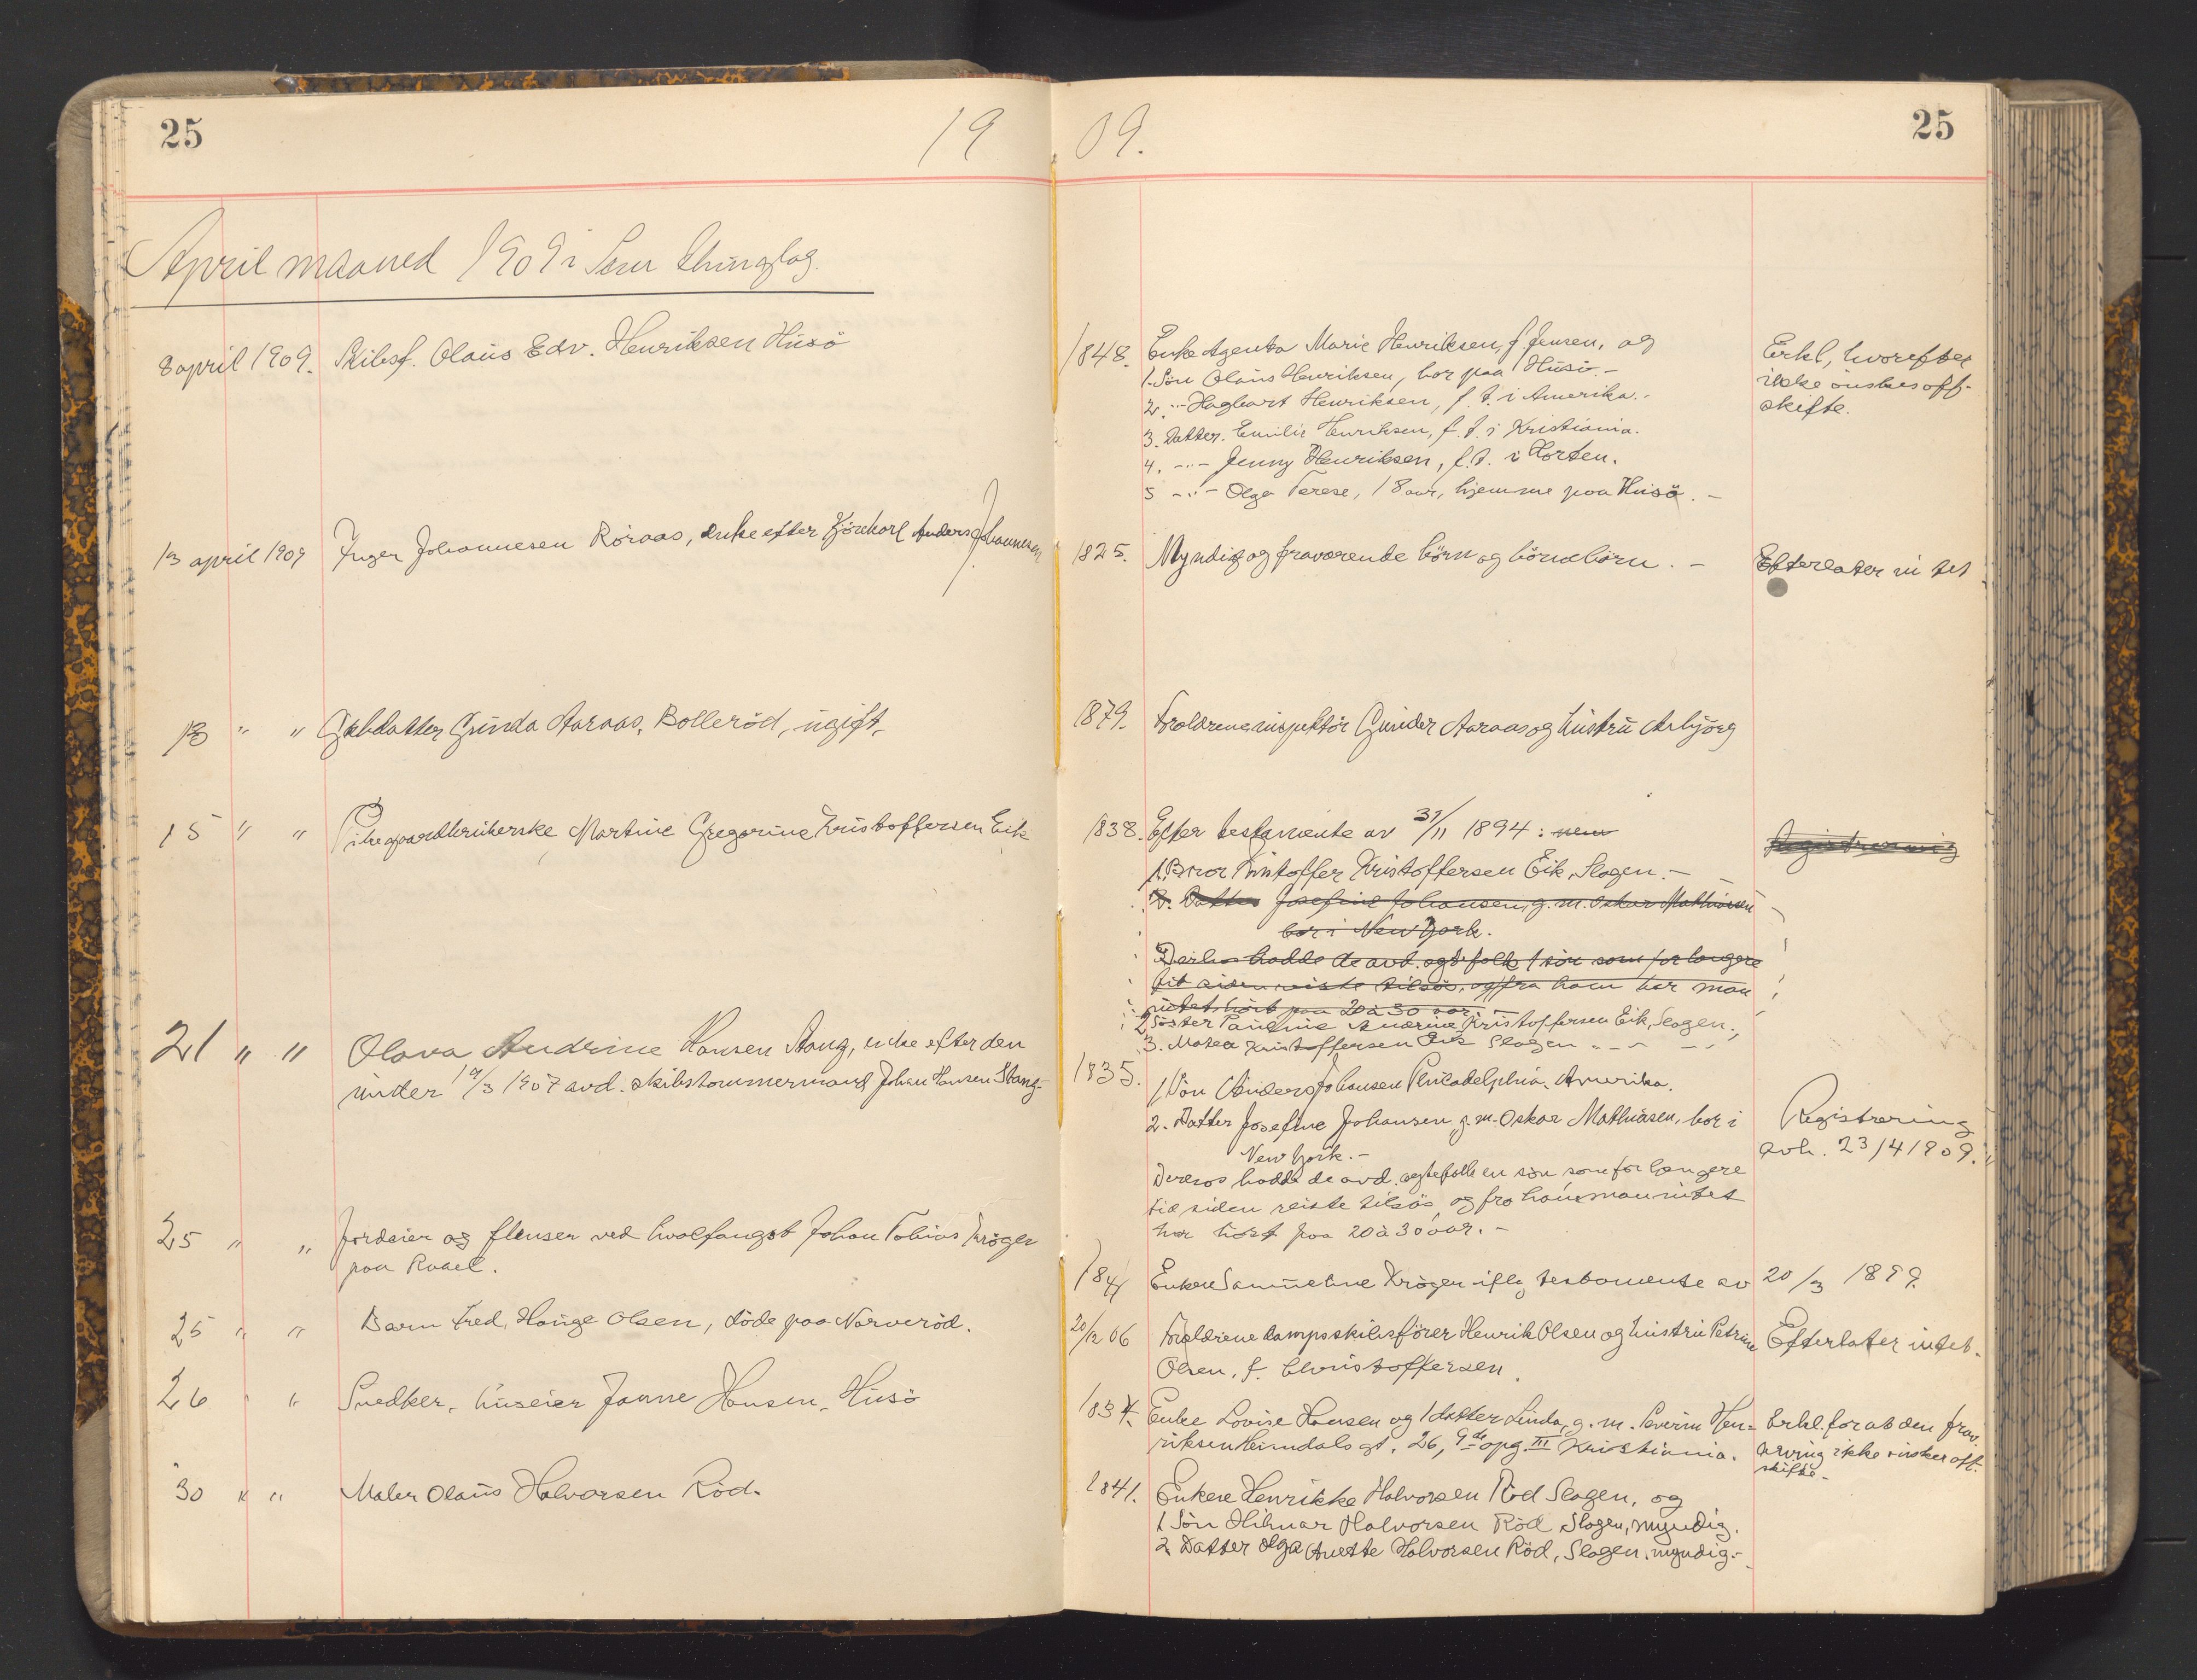 25
19
09.
25
April maaned 1909 i Sem thinglag.
8 april 1909. Skibsf. Olaus Edv. Henriksen Husö
1848. Enke Agenta Marie Henriksen, f. Jensen, og
1. Sön Olaus Henriksen, bor paa Husö. -
2. -"- Hagbart Henriksen, f. t. i Amerika. -
3. Datter. Emilie Henriksen, f. t. i Kristiania.
4. -"- Jenny Henriksen, f. t. i Horten.
5 -"- Olga Terese, 18 aar, hjemme paa Husö. -
Erkl, hvorefter
ikke önskes off.
skifte.
13 april 1909 Inger Johannesen Röraas, enke efter Kjörekarl Anders Johannesen
1825. Myndig og fraværende börn og börnebörn. -
Efterlater intet
13 " " Gaardatter Gunda Aaraas, Bolleröd, ugift.
1879. Forældrene inspektör Gunder Aaraas og hustru Asbjörg
15 " " Pike gaardbrukerske Martine Gregorine Kristoffersen Eik
1838. Efter testamente av 31/11 1894: nem
1. Bror Kristoffer Kristoffersen Eik, Slagen. -
2. Datter Josefine Johansen, g. m. Oskar Mathiasen
bor i New York.
Derhos hadde de avd. egtefolk 1 sön som for længere
tid siden reiste tilsös, og fra ham har man
intet hört paa 20 à 30 aar. -
2. Söster Pauline Andrine Kristoffersen Eik, Slagen.
3. Matea Kristoffersen Eik Slagen
Registrering
21 " " Olava Andrine Hansen Stang, enke efter den
under 19/3 1907 avd. skibstømmermand Johan Hansen Stang.-
1835.
1 Sön Anders Johansen Philadelphia, Amerika.
2. Datter Josefine Johansen g. m. Oskar Mathiasen, bor i
New York. -
Derhos hadde de avd. egtefolk en sön som for længere
tid siden reiste tilsös, og fra ham man intet
har hört paa 20 à 30 aar. -
Registrering
avh. 23/4 1909.
25 " " Jordeier og flenser ved hvalfangst Johan Tobias Kröger
paa Ruael.
1841 Enken Samueline Kröger ifly testamente av 20/3 1899.
25 " " Barn Fred. Hauge Olsen, döde paa Narveröd.
20/12 06 Forældrene dampskibsförer Henrik Olsen og hustru Petrine
Olsen, f. Christoffersen.
Efterlater intet.
26 " " Snedker, huseier Janne Hansen, Husö
1834. Enke Lovise Hansen og 1 datter Linda, g. m. Severin Hen-
riksen Heimdals gt. 26, 9de opg. III Kristiania.
Erkl. for at den frav.
arving ikke önsker off.
skifte -
30 " " Maler Olaus Halvorsen Röd.
1841. Enken Henrikke Halvorsen Röd Slagen, og
1 Sön Hilmar Halvorsen Röd Slagen, myndig.
2 Datter Olga Anette Halvorsen Röd, Slagen, myndig. -